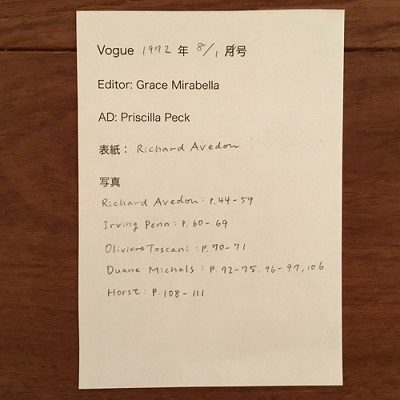 Vogue 1972 年 8/1 月号
Editor: Grace Mirabella
AD: Priscilla Peck
表紙： Richard Avedon
写真
Richard Avedon: P.44-59
Irving Penn: P.60-69
Oliviero Toscani: P.70-71
Duane Michals: P.72-75, 96-97, 106
Horst: P.108-111